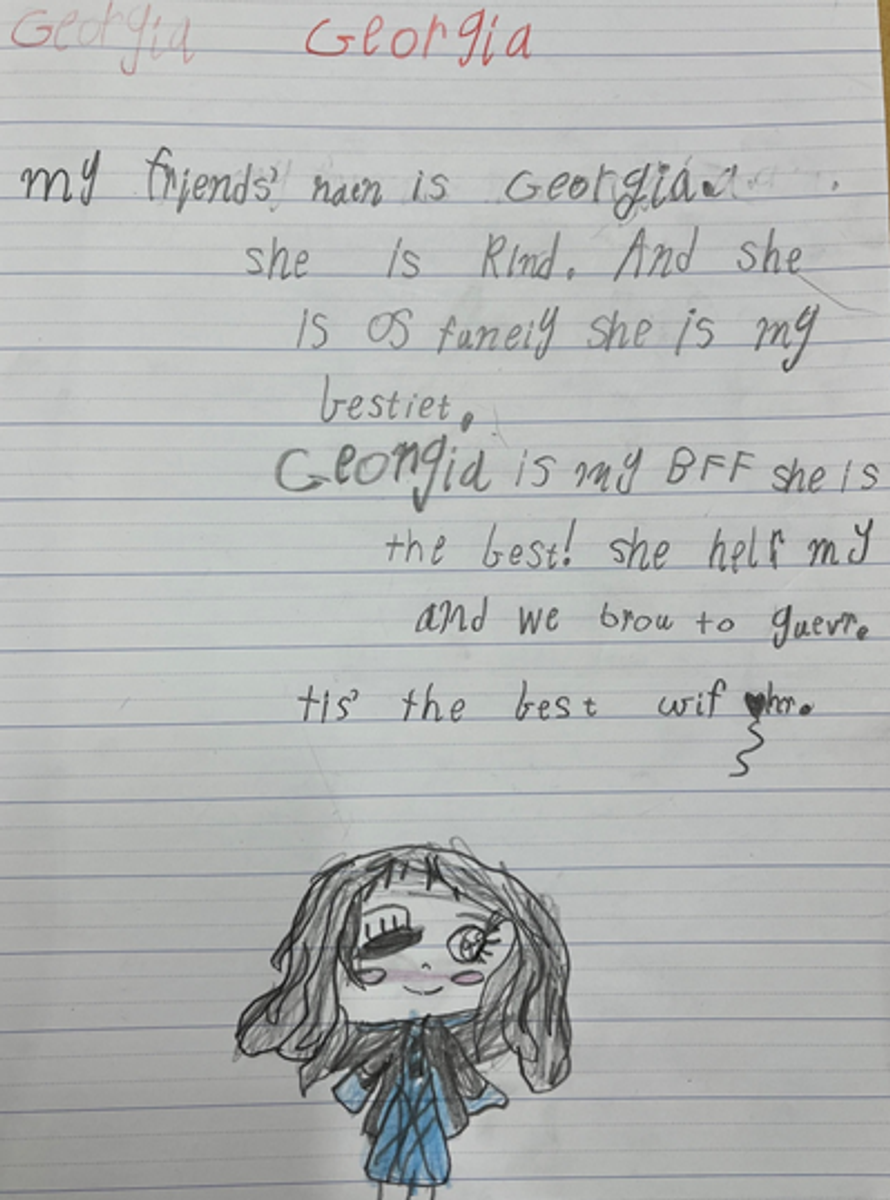 Georgia Georgia
my friends' naem is Georgia.
she is kind. And she
is os funeiy she is my
bestiet.
Georgia is my BFF she is
the best! she help my
and we brou to guevr.
tis' the best wif hr.